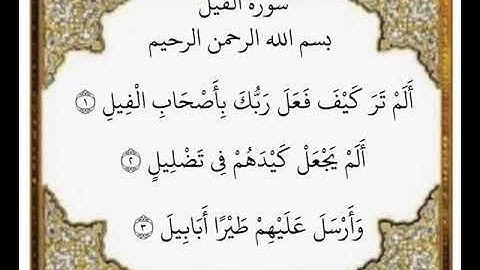 سورة الفيل
بسم الله الرحمن الرحيم
أَلَمْ تَرَ كَيْفَ فَعَلَ رَبُّكَ بِأَصْحَابِ الْفِيلِ ﴿١﴾
أَلَمْ يَجْعَلْ كَيْدَهُمْ فِى تَضْلِيلٍ ﴿٢﴾
وَأَرْسَلَ عَلَيْهِمْ طَيْرًا أَبَابِيلَ ﴿٣﴾